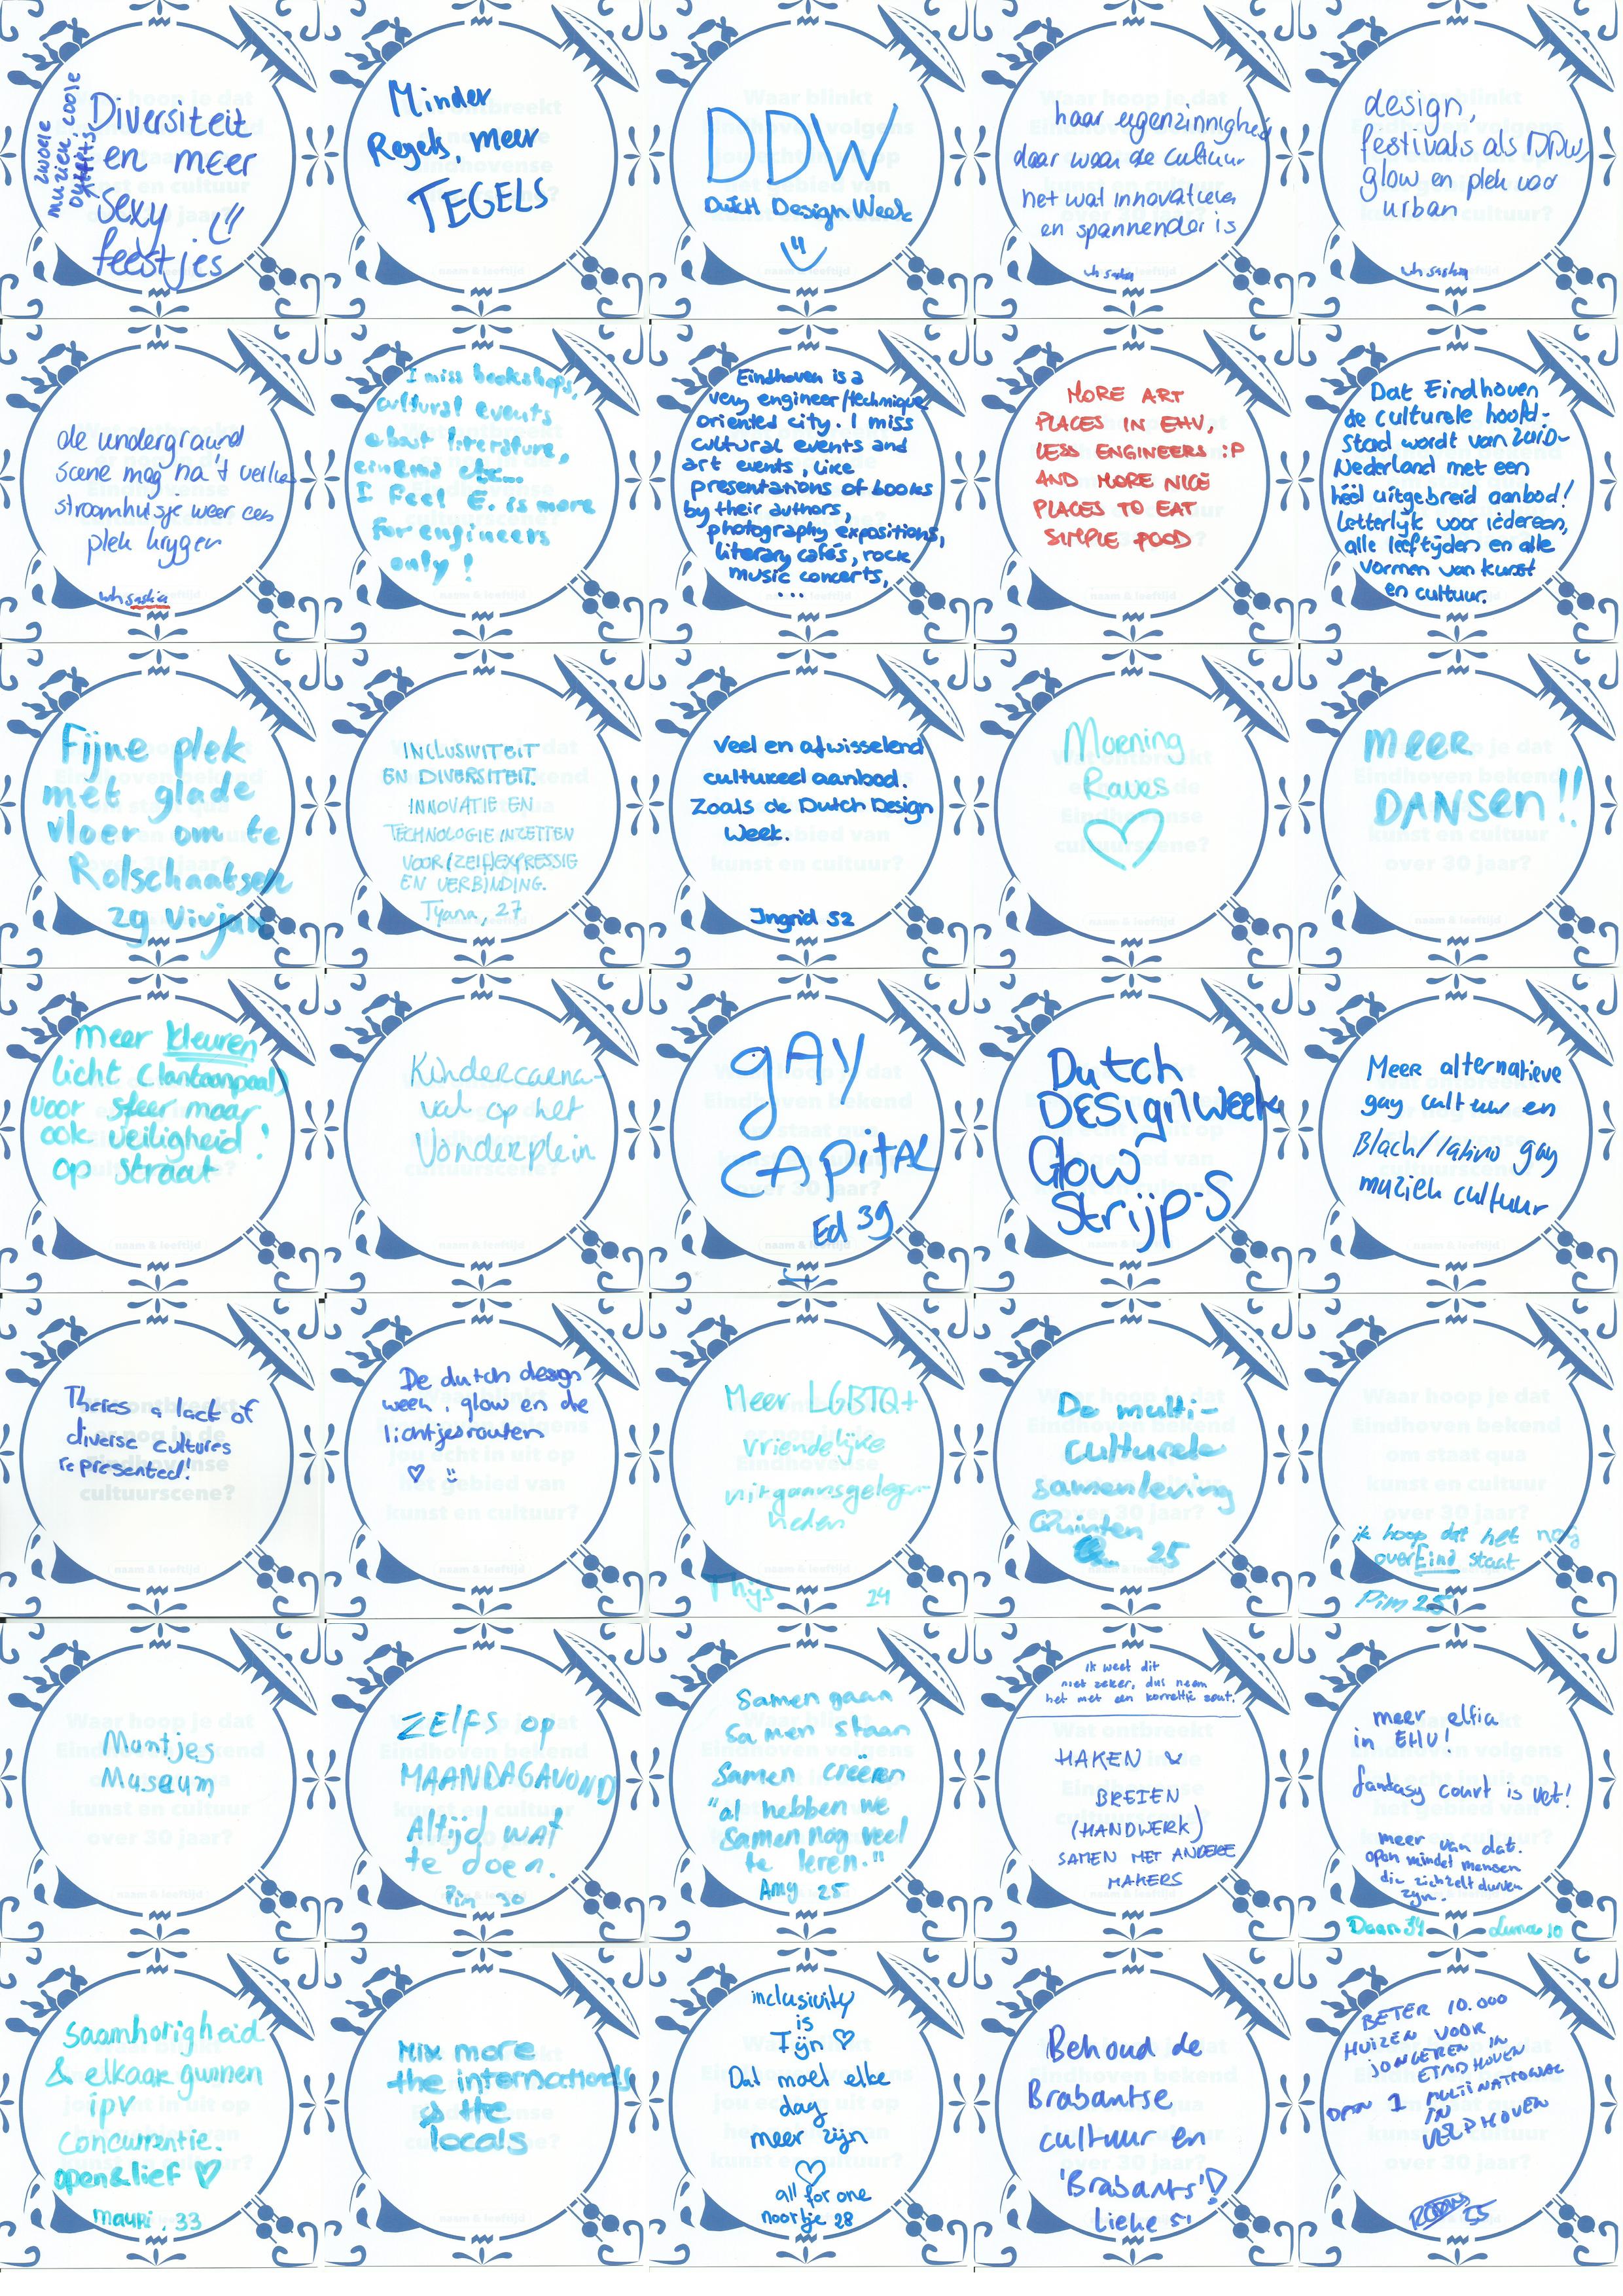 Diversiteit
en meer
sexy !!
feestjes
zwoele
muziek, coole
outfits,
Minder
Regels, meer
TEGELS
DDW
Dutch Design Week
haar eigenzinnigheid
daar waar de cultuur
net wat innovatiever
en spannender is
wh saskia
design,
festivals als DDW,
glow en plek voor
urban
wh saskia
de underground
scene mag na 't verlies
stroomhuisje weer een
plek krijgen
wh saskia
I miss bookshops,
cultural events
about literature,
cinema etc...
I feel E. is more
for engineers
only!
Eindhoven is a
very engineer/technique
oriented city. I miss
cultural events and
art events, like
presentations of books
by their authors,
photography expositions,
literary cafés, rock
music concerts,
...
MORE ART
PLACES IN EHV,
LESS ENGINEERS :P
AND MORE NICE
PLACES TO EAT
SIMPLE FOOD
Dat Eindhoven
de culturele hoofd-
stad wordt van Zuid-
Nederland met een
héél uitgebreid aanbod!
Letterlijk voor iedereen,
alle leeftijden en alle
vormen van kunst
en cultuur.
Fijne plek
met gladde
vloer om te
Rolschaatsen
29 Vivjan
INCLUSIVITEIT
EN DIVERSITEIT.
INNOVATIE EN
TECHNOLOGIE INZETTEN
VOOR (ZELF)EXPRESSIE
EN VERBINDING.
Tyana, 27
Veel en afwisselend
cultureel aanbod.
Zoals de Dutch Design
Week.
Ingrid 52
Morning
Raves
MEER
DANSEN!!
Meer kleuren
licht (lantaanpaal)
voor sfeer maar
ook veiligheid!
op straat
Kindercarna-
val op het
Vonderplein
gAY
CAPITAL
Ed 39
Dutch
DESignWeek
Glow
Strijp-S
Meer alternatieve
gay cultuur en
Black/latino gay
muziek cultuur
Theres a lack of
diverse cultures
represented!
De dutch design
week. glow en de
lichtjesrouten
♡ :)
Meer LGBTQ+
vriendelijke
uitgaansgelegen-
heden
Thijs 24
De multi-
culturele
samenleving
Quinten
25
ik hoop dat het nog
overEind staat
Pim 25
Muntjes
Museum
ZElFS op
MAANDAGAVOND
Altijd wat
te doen.
Pim 30
Samen gaan
Samen staan
Samen creëren
"al hebben we
samen nog veel
te leren."
Amy 25
ik weet dit
niet zeker, dus neem
het met een korreltje zout.
HAKEN
BREIEN
(HANDWERK)
SAMEN MET ANDERE
MAKERS
meer elfia
in EHV!
fantasy court is vet!
meer van dat.
open minded mensen
die zichzelf durven
zijn.
Daan 34 Luna 10
Saamhorigheid
& elkaar gunnen
ipv
Concurrentie.
open&lief ♡
mauri, 33
Mix more
the internationals
& the
locals
inclusivity
is
Fijn ♡
Dat moet elke
dag
meer zijn
♡
all for one
noortje 28
Behoud de
Brabantse
cultuur en
'Brabants'!
Lieke 51
BETER 10.000
HUIZEN VOOR
JONGEREN IN
EINDHOVEN
DAN 1 MULTINATIONAL
IN
VELDHOVEN
25